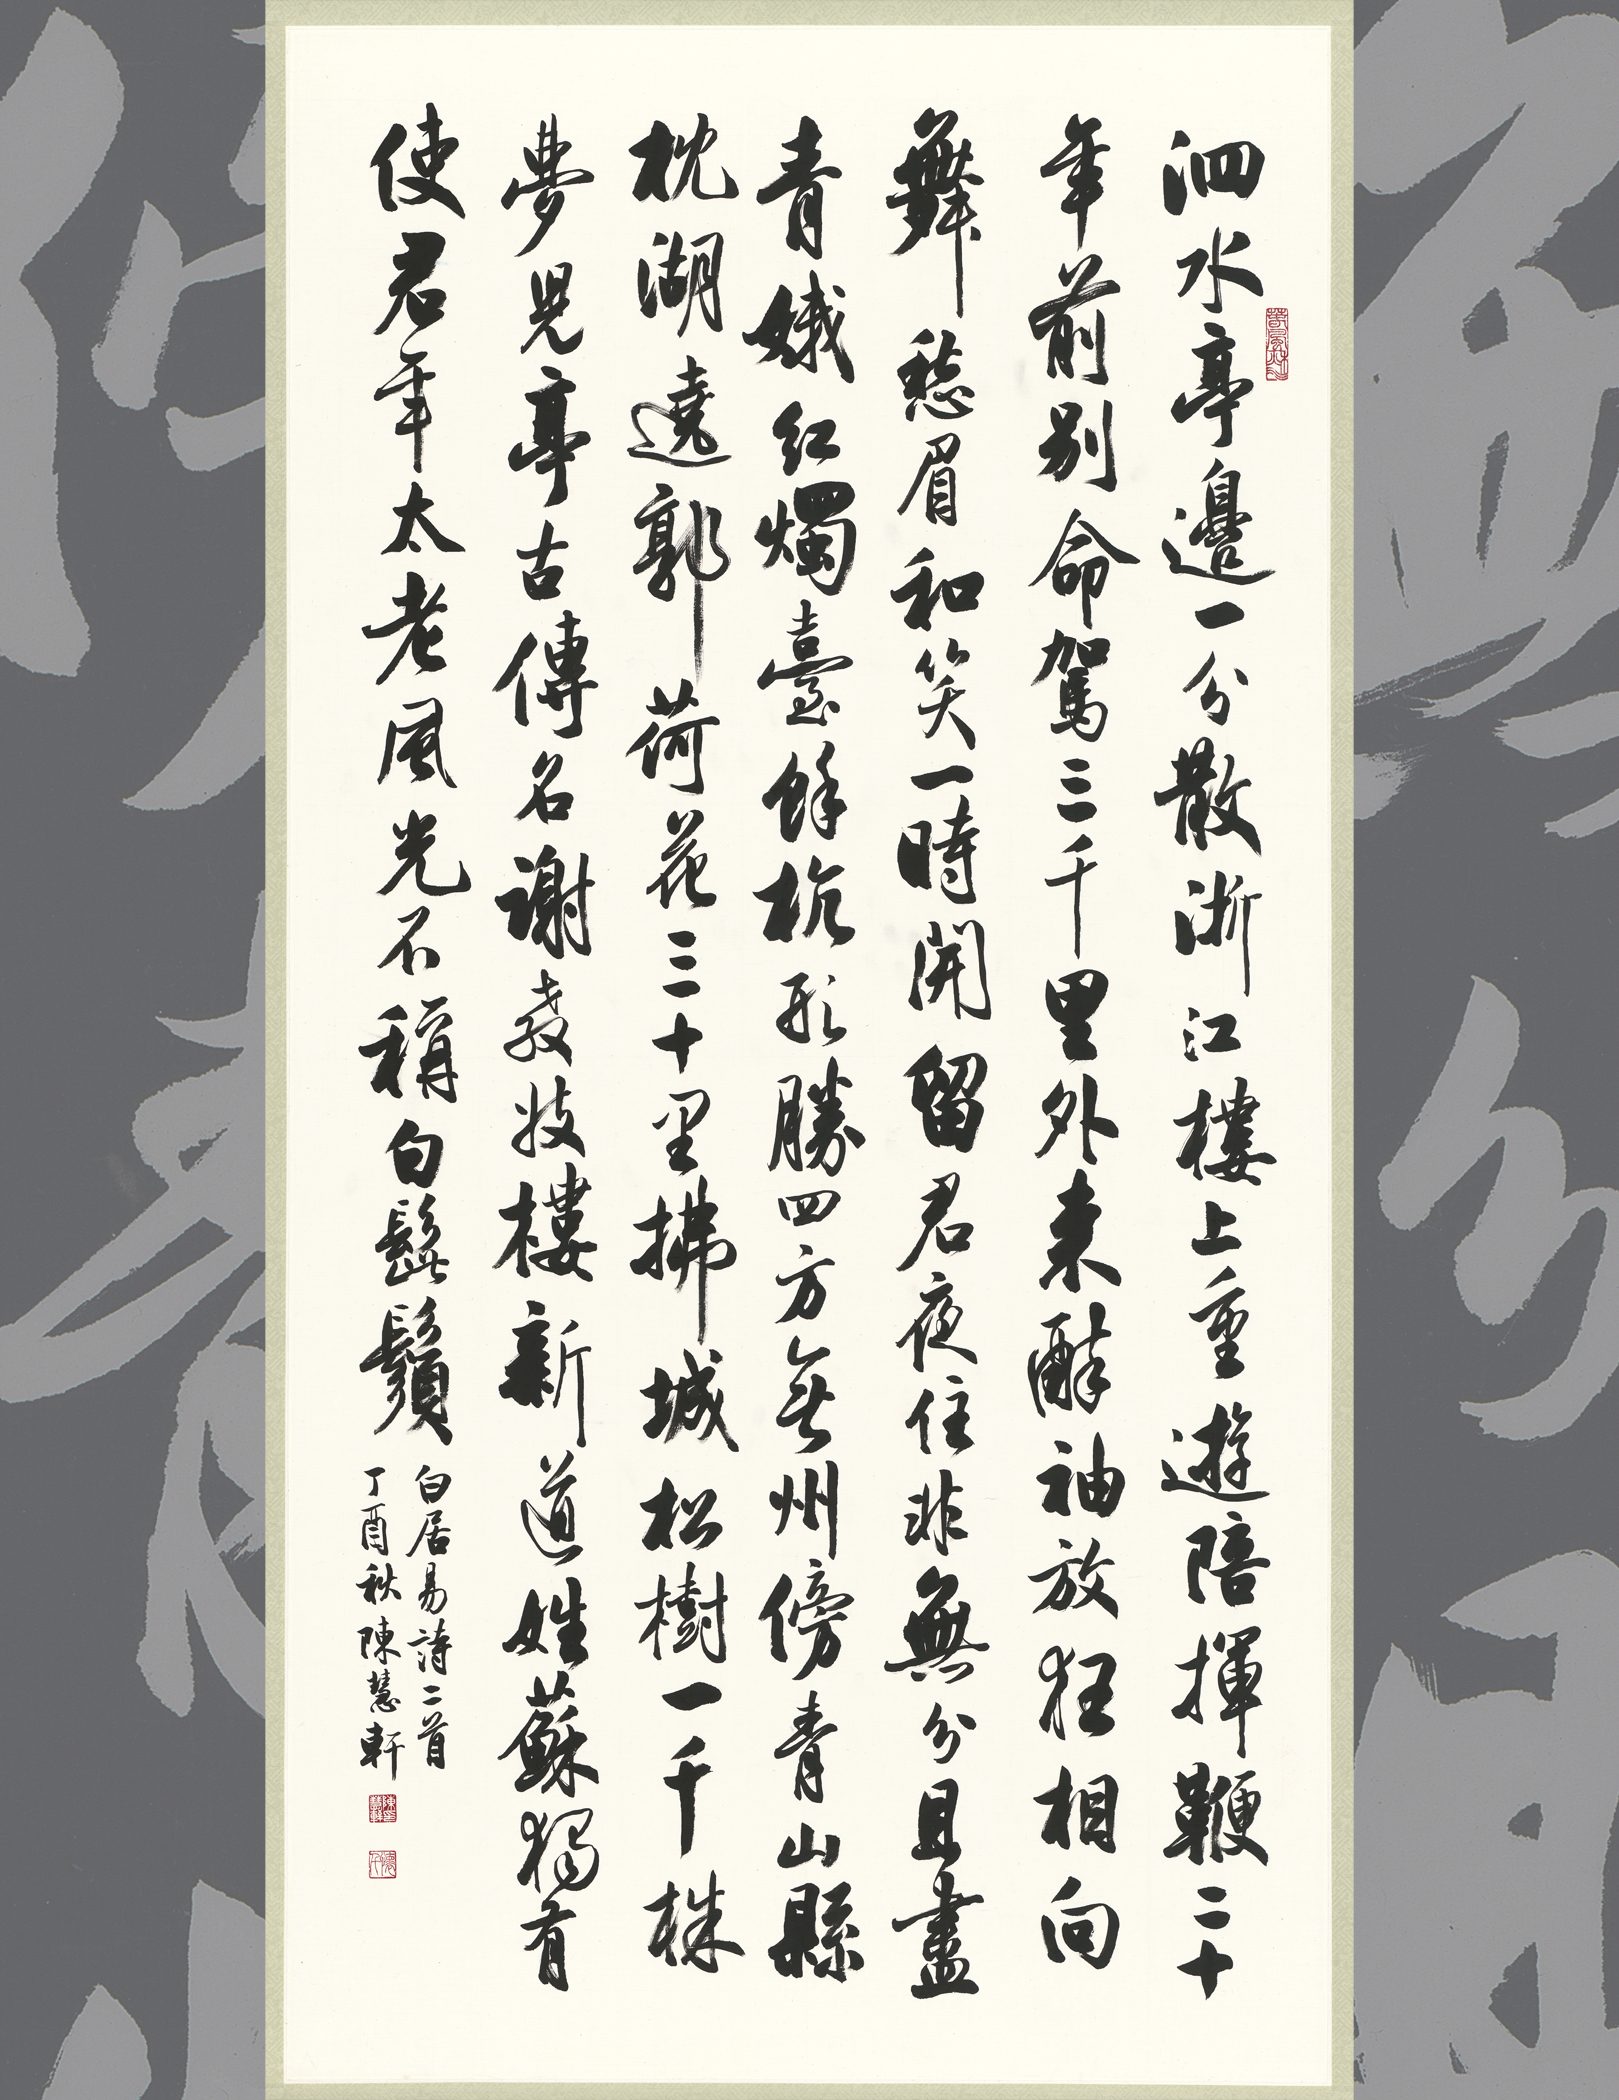 泗水亭邊一分散浙江樓上重遊陪揮鞭二十
年前別命駕三千里外來醉袖放狂相向
舞愁眉和笑一時開留君夜住非無分且盡
青娥紅燭臺餘杭形勝四方無州傍青山縣
枕湖遶郭荷花三十里拂城松樹一千株
夢兒亭古傳名謝教妓樓新道姓蘇獨有
使君年太老風光不稱白髭鬚
白居易詩二首
丁酉秋陳慧軒